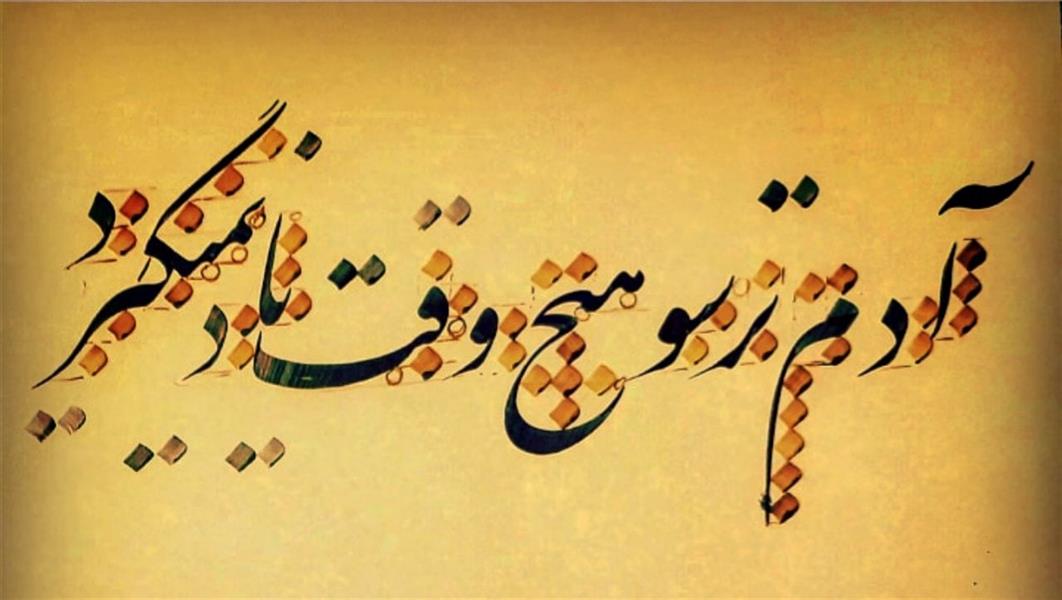 آدم ترسو هیچ وقت یاد نمیگیرد